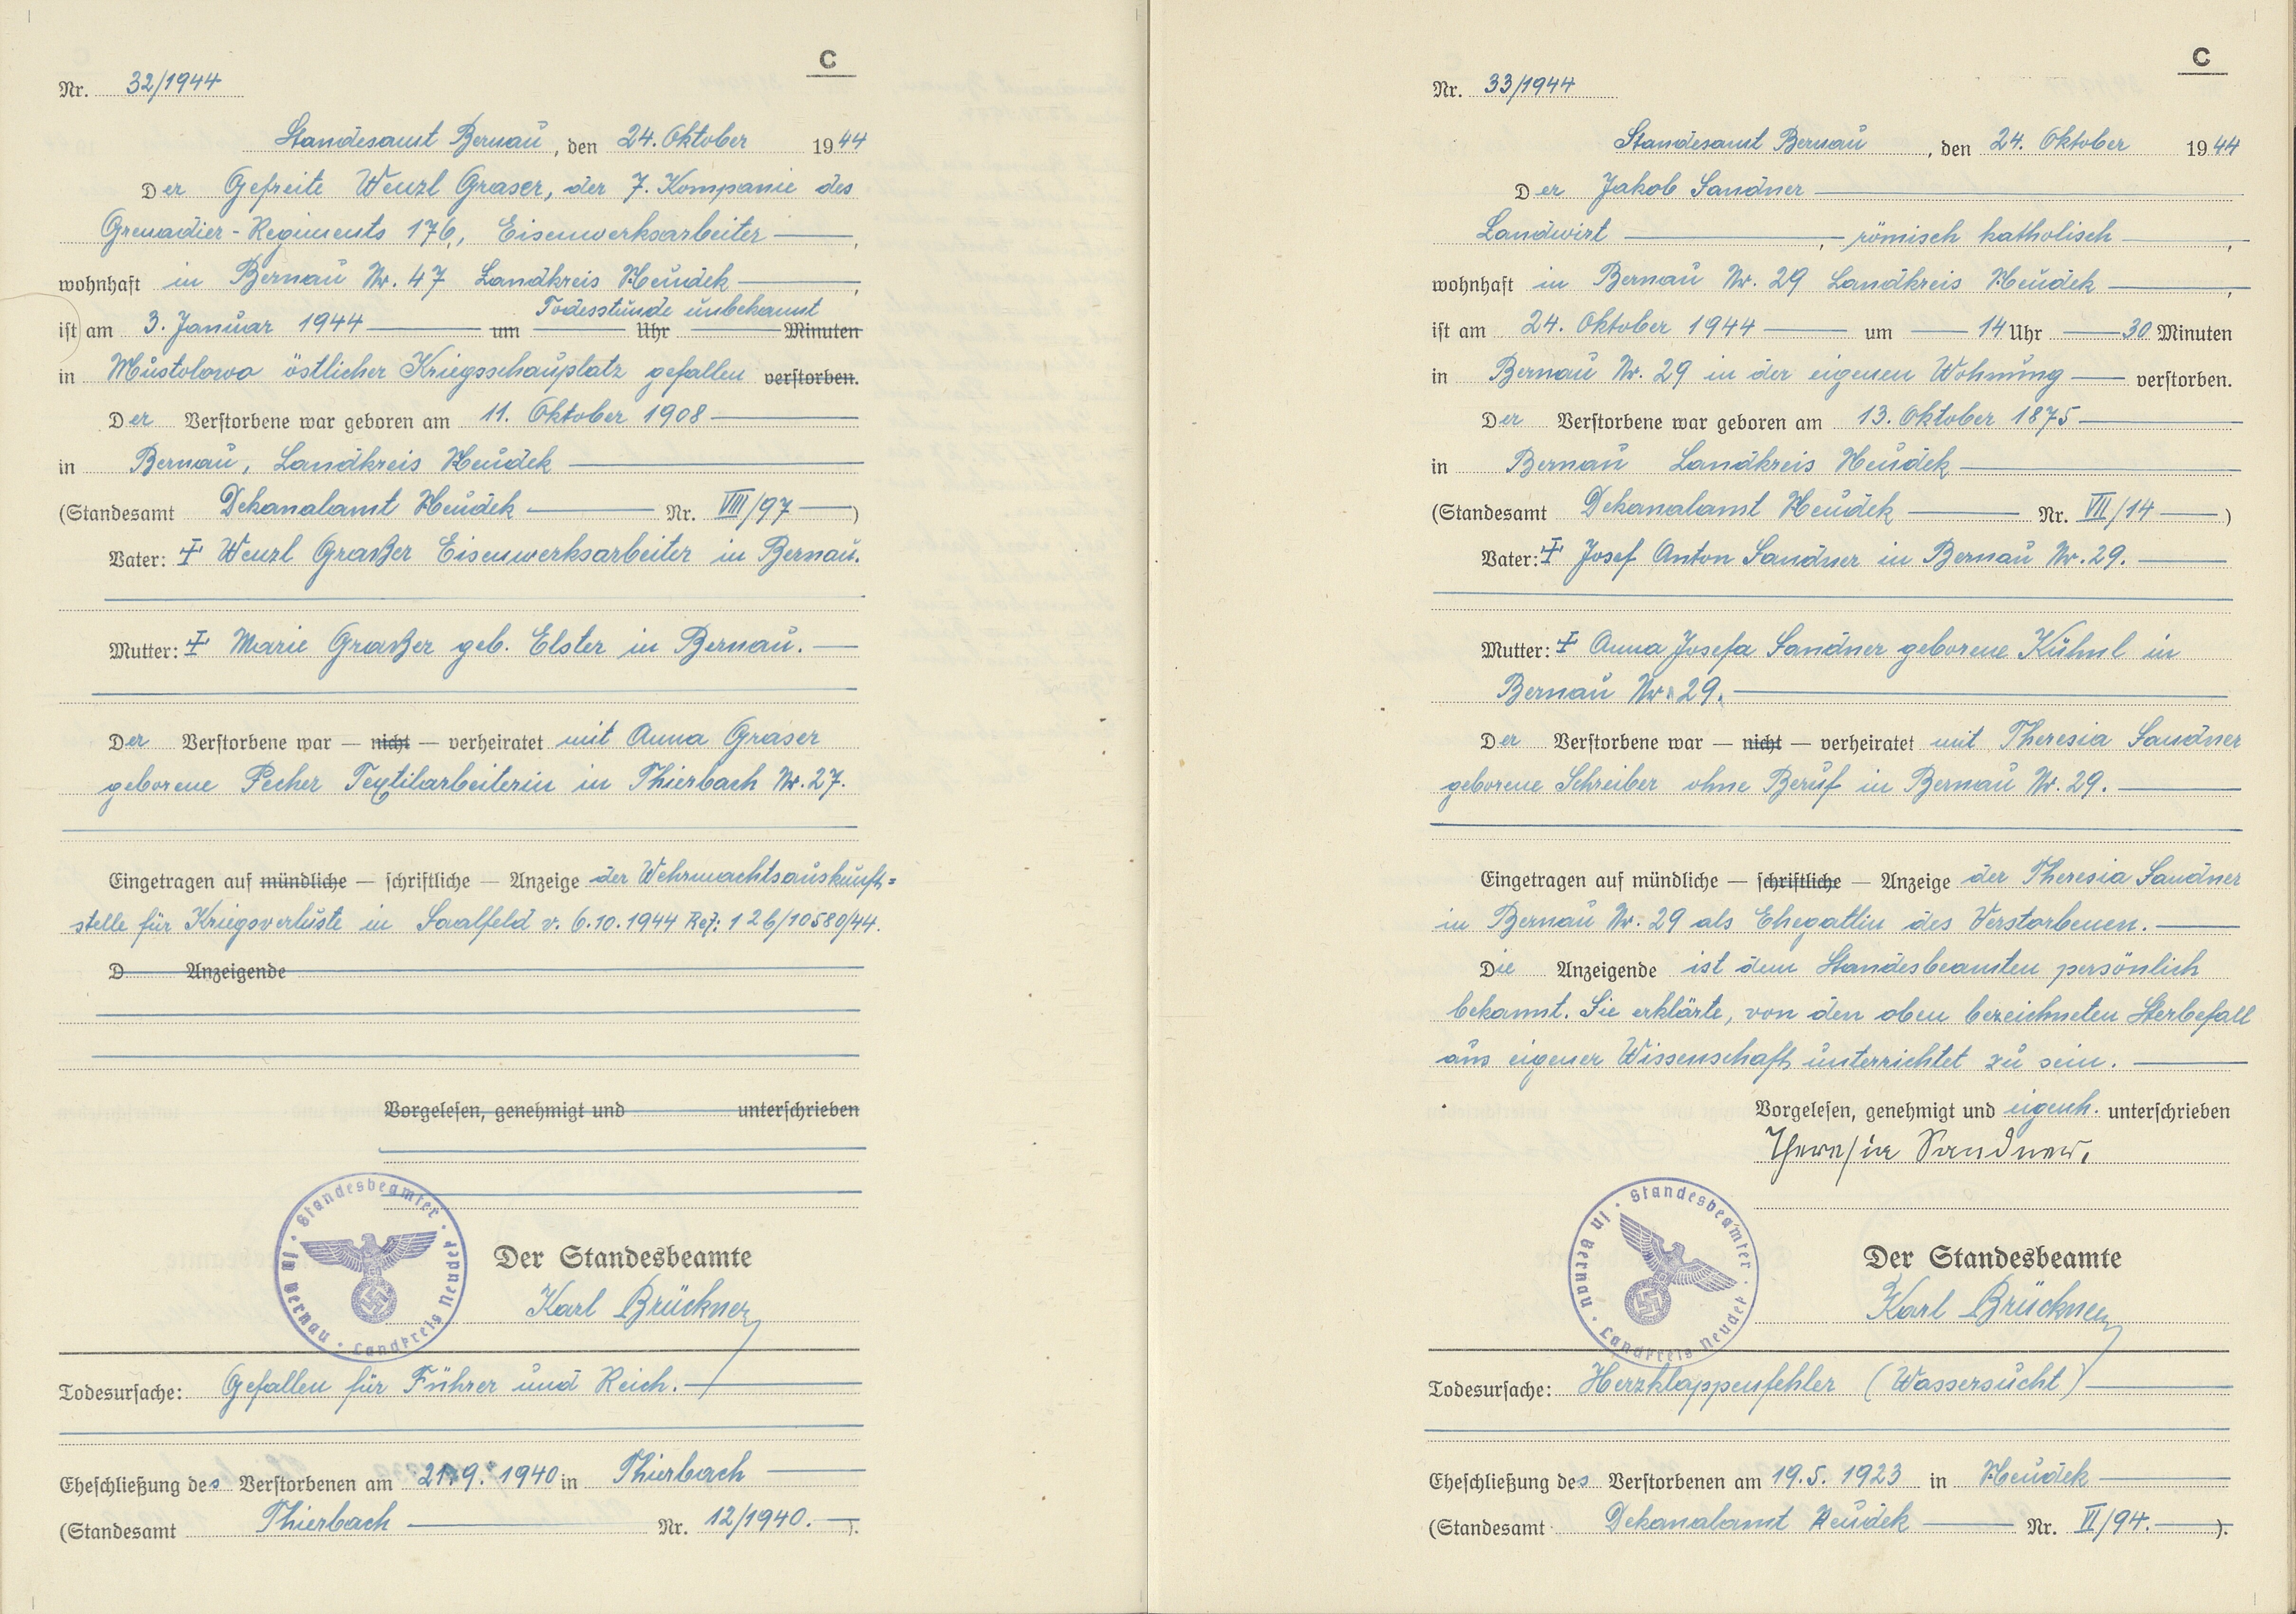 C
Nr. 32/1944
Standesamt Bernau, den 24. Oktober 1944
Der Gefreite Wenzl Graser, der 7. Kompanie des
Grenadier-Regiments 176, Eisenwerksarbeiter,
wohnhaft in Bernau Nr. 47 Landkreis Neudek,
Todesstunde unbekannt
ist am 3. Januar 1944 um Uhr Minuten
in Mustolowo östlicher Kriegsschauplatz gefallen verstorben.
Der Verstorbene war geboren am 11. Oktober 1908
in Bernau, Landkreis Neudek
(Standesamt Dekanalamt Neudek Nr. VIII/97)
Vater: Wenzl Graßer Eisenwerksarbeiter in Bernau.
Mutter: Marie Graßer geb. Elster in Bernau.
Der Verstorbene war — nicht — verheiratet mit Anna Graser
geborene Pecher Textilarbeiterin in Thierbach Nr. 27.
Eingetragen auf mündliche — schriftliche — Anzeige der Wehrmachtsauskunft=
stelle für Kriegsverluste in Saalfeld v. 6.10.1944 Ref: 126/10580/44.
D Anzeigende
Vorgelesen, genehmigt und unterschrieben
Standesbeamter · in Bernau · Landkreis Neudek ·
Der Standesbeamte
Karl Brückner
Todesursache: Gefallen für Führer und Reich.
Eheschließung des Verstorbenen am 21.9.1940 in Thierbach
(Standesamt Thierbach Nr. 12/1940.).
C
Nr. 33/1944
Standesamt Bernau, den 24. Oktober 1944
Der Jakob Sandner
Landwirt, römisch katholisch,
wohnhaft in Bernau Nr. 29 Landkreis Neudek,
ist am 24. Oktober 1944 um 14 Uhr 30 Minuten
in Bernau Nr. 29 in der eigenen Wohnung verstorben.
Der Verstorbene war geboren am 13. Oktober 1875
in Bernau Landkreis Neudek
(Standesamt Dekanalamt Neudek Nr. VII/14)
Vater: Josef Anton Sandner in Bernau Nr. 29.
Mutter: Anna Josefa Sandner geborene Kühnl in
Bernau Nr. 29.
Der Verstorbene war — nicht — verheiratet mit Theresia Sandner
geborene Schreiber ohne Beruf in Bernau Nr. 29.
Eingetragen auf mündliche — schriftliche — Anzeige der Theresia Sandner
in Bernau Nr. 29 als Ehegattin des Verstorbenen.
Die Anzeigende ist dem Standesbeamten persönlich
bekannt. Sie erklärte, von den oben bezeichneten Sterbefall
aus eigener Wissenschaft unterrichtet zu sein.
Vorgelesen, genehmigt und eigenh. unterschrieben
Theresia Sandner.
Standesbeamter · in Bernau · Landkreis Neudek ·
Der Standesbeamte
Karl Brückner
Todesursache: Herzklappenfehler (Wassersucht)
Eheschließung des Verstorbenen am 19.5.1923 in Neudek
(Standesamt Dekanalamt Neudek Nr. VI/94.).